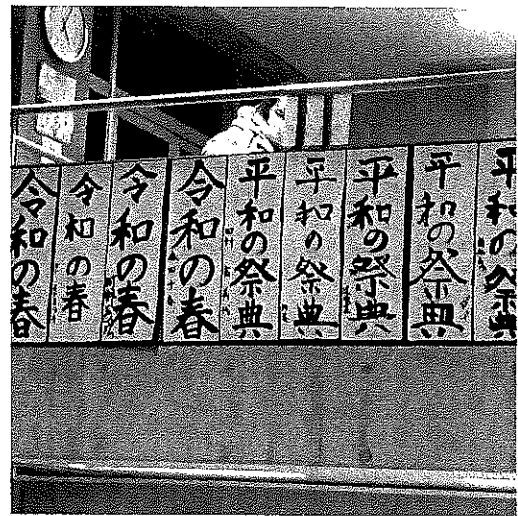 令和の春
令和の春
令和の春
令和の春
平和の祭典
平和の祭典
平和の祭典
平和の祭典
平和の祭典